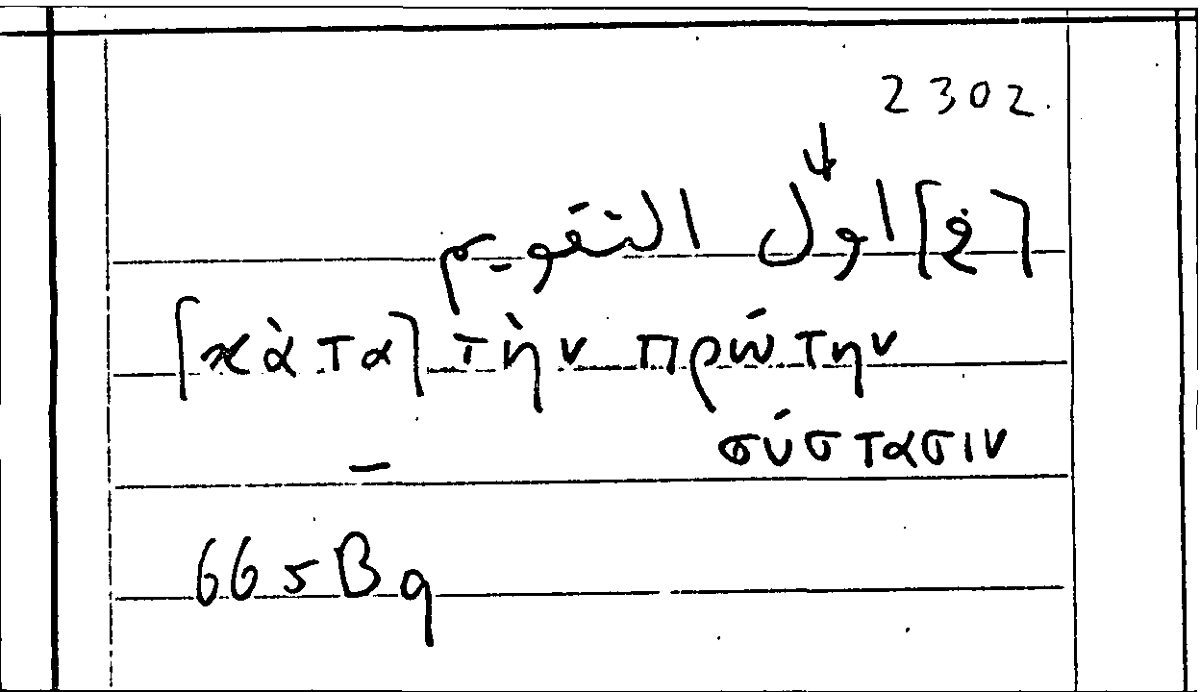 2302.
↓
[في] اول التقويم
[κὰτα] τὴν πρώτην
σύστασιν
665B9